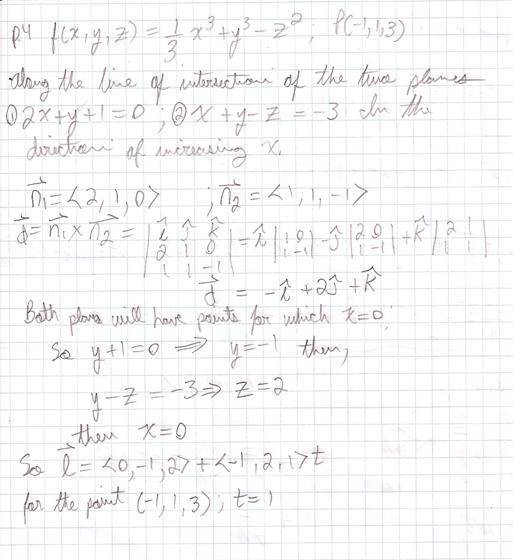 p.4 f(x,y,z) = 1/3 x³+y³-z²; P(-1,1,3)
Along the line of intersection of the two planes
① 2x+y+1=0 ; ② x+y-z = -3 In the
direction of increasing x.
n⃗₁=<2,1,0> ; n⃗₂=<1,1,-1>
d⃗= n⃗₁ x n⃗₂ = |î ĵ k̂; 2 1 0; 1 1 -1| = î |1 0; 1 -1| - ĵ |2 0; 1 -1| + k̂ |2 1; 1 1|
d⃗ = -î +2ĵ +k̂
Both planes will have points for which x=0;
So y+1=0 ⟹ y=-1 then,
y-z = -3 ⟹ z=2
then x=0
So l⃗ = <0,-1,2> + <-1,2,1> t
for the point (-1,1,3); t=1